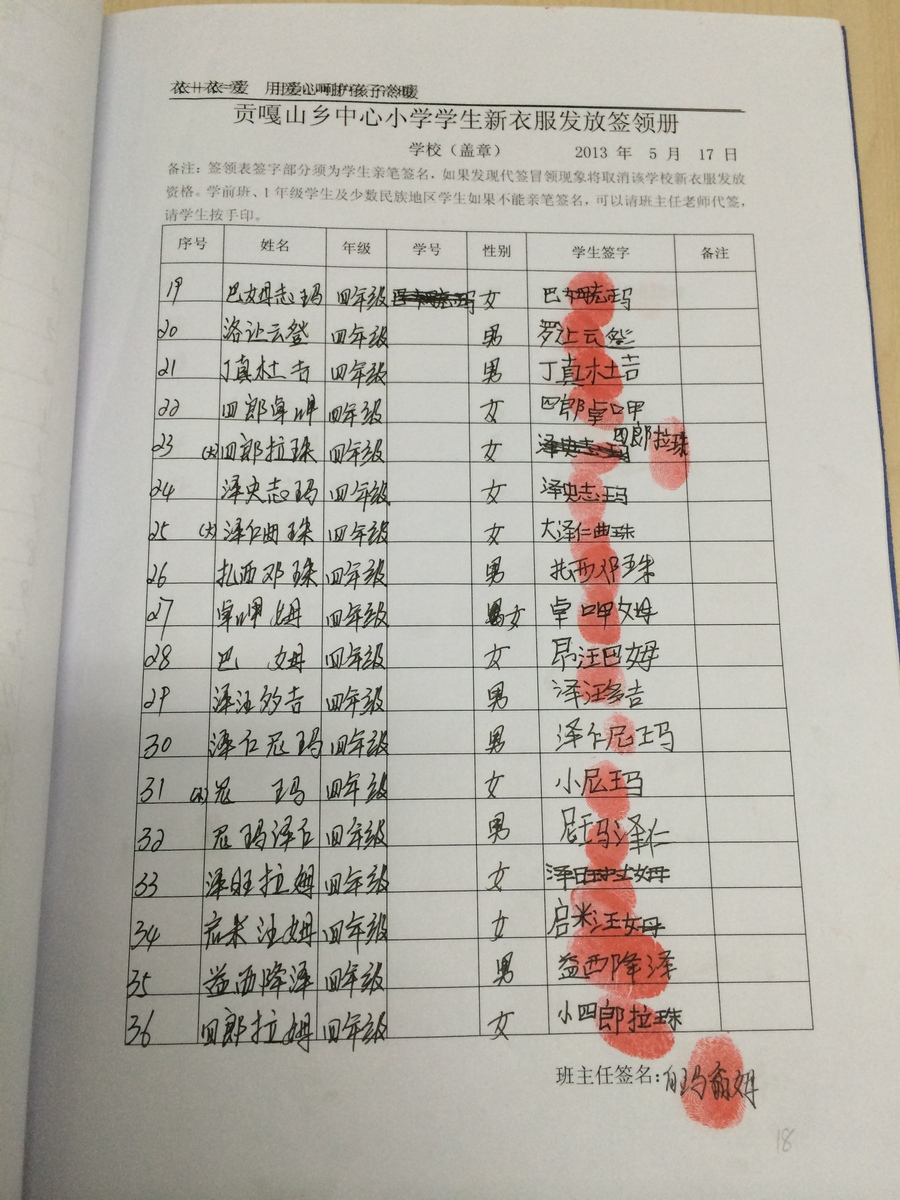 衣+衣=爱 用爱心呵护孩子冷暖
贡嘎山乡中心小学学生新衣服发放签领册
学校（盖章） 2013 年 5 月 17 日
备注：签领表签字部分须为学生亲笔签名，如果发现代签冒领现象将取消该学校新衣服发放
资格。学前班、1 年级学生及少数民族地区学生如果不能亲笔签名，可以请班主任老师代签，
请学生按手印。
序号 姓名 年级 学号 性别 学生签字 备注
19 巴姆志玛 四年级 女 巴姆志玛
20 洛让云登 四年级 男 罗让云登
21 丁真木土吉 四年级 男 丁真木土吉
22 四郎卓呷 四年级 女 四郎卓呷
23 (大)四郎拉珠 四年级 女 泽史志玛 四郎拉珠
24 泽史志玛 四年级 女 泽史志玛
25 (大)泽仁曲珠 四年级 女 大泽仁曲珠
26 扎西邓珠 四年级 男 扎西邓珠
27 卓呷姆 四年级 女 卓呷姆
28 巴姆 四年级 女 昂汪巴姆
29 泽汪多吉 四年级 男 泽汪多吉
30 泽仁尼玛 四年级 男 泽仁尼玛
31 (小)尼玛 四年级 女 小尼玛
32 尼玛泽仁 四年级 男 尼玛泽仁
33 泽旺拉姆 四年级 女 泽旺拉姆
34 启米汪姆 四年级 女 启米汪姆
35 益西降泽 四年级 男 益西降泽
36 四郎拉姆 四年级 女 小四郎拉珠
班主任签名:
18